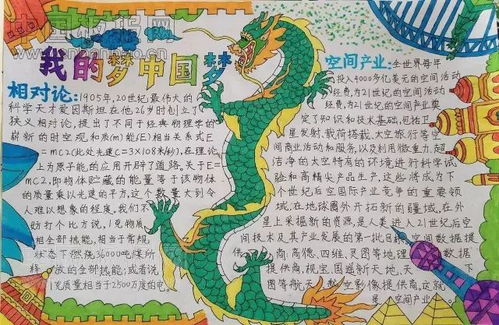 我的梦中国梦
相对论:1905年,20世纪最伟大的
科学天才爱因斯坦在他26岁时创立了
狭义相对论,提出了不同于经典物理学的
崭新的时空观和质(m)能(E)相当关系式E
=mc2(此处光速C=3×108米/秒),在理论
上为原子能的应用开辟了道路。关于E=
MC2,即物体贮藏的能量等于该物体
的质量乘以光速的平方,这个数量大到令
人难以想象的程度,我们不
妨打个比方说,1克物质
相当于常规
状态下燃烧36000吨煤所
释放的全部热能;或者说
1克质量相当于2500万度的电
空间产业:全世界每年
投入4000多亿美元的空间活动
经费,为21世纪的空间活动
经费,为21世纪的空间产业奠
定了知识和技术基础,包括卫
星发射,载荷搭载,太空旅行等空
间商业活动和服务,以及利用微重力,超
洁净的太空特高的环境进行科学试
验和高精尖产品生产,这些将成为下
个世纪后空国际产业竞争的重要领
域,在地球圈外开拓新的疆域,在外
星上采掘新的资源,是人类进入21世纪后
空间技术及其产业发展的第一批目标
空间数据提
供商:高德、四维、灵图等地理
数据
提供商,视宝、图遥新天地、
下
图等航天
影像提供商,这就
是
空间产业